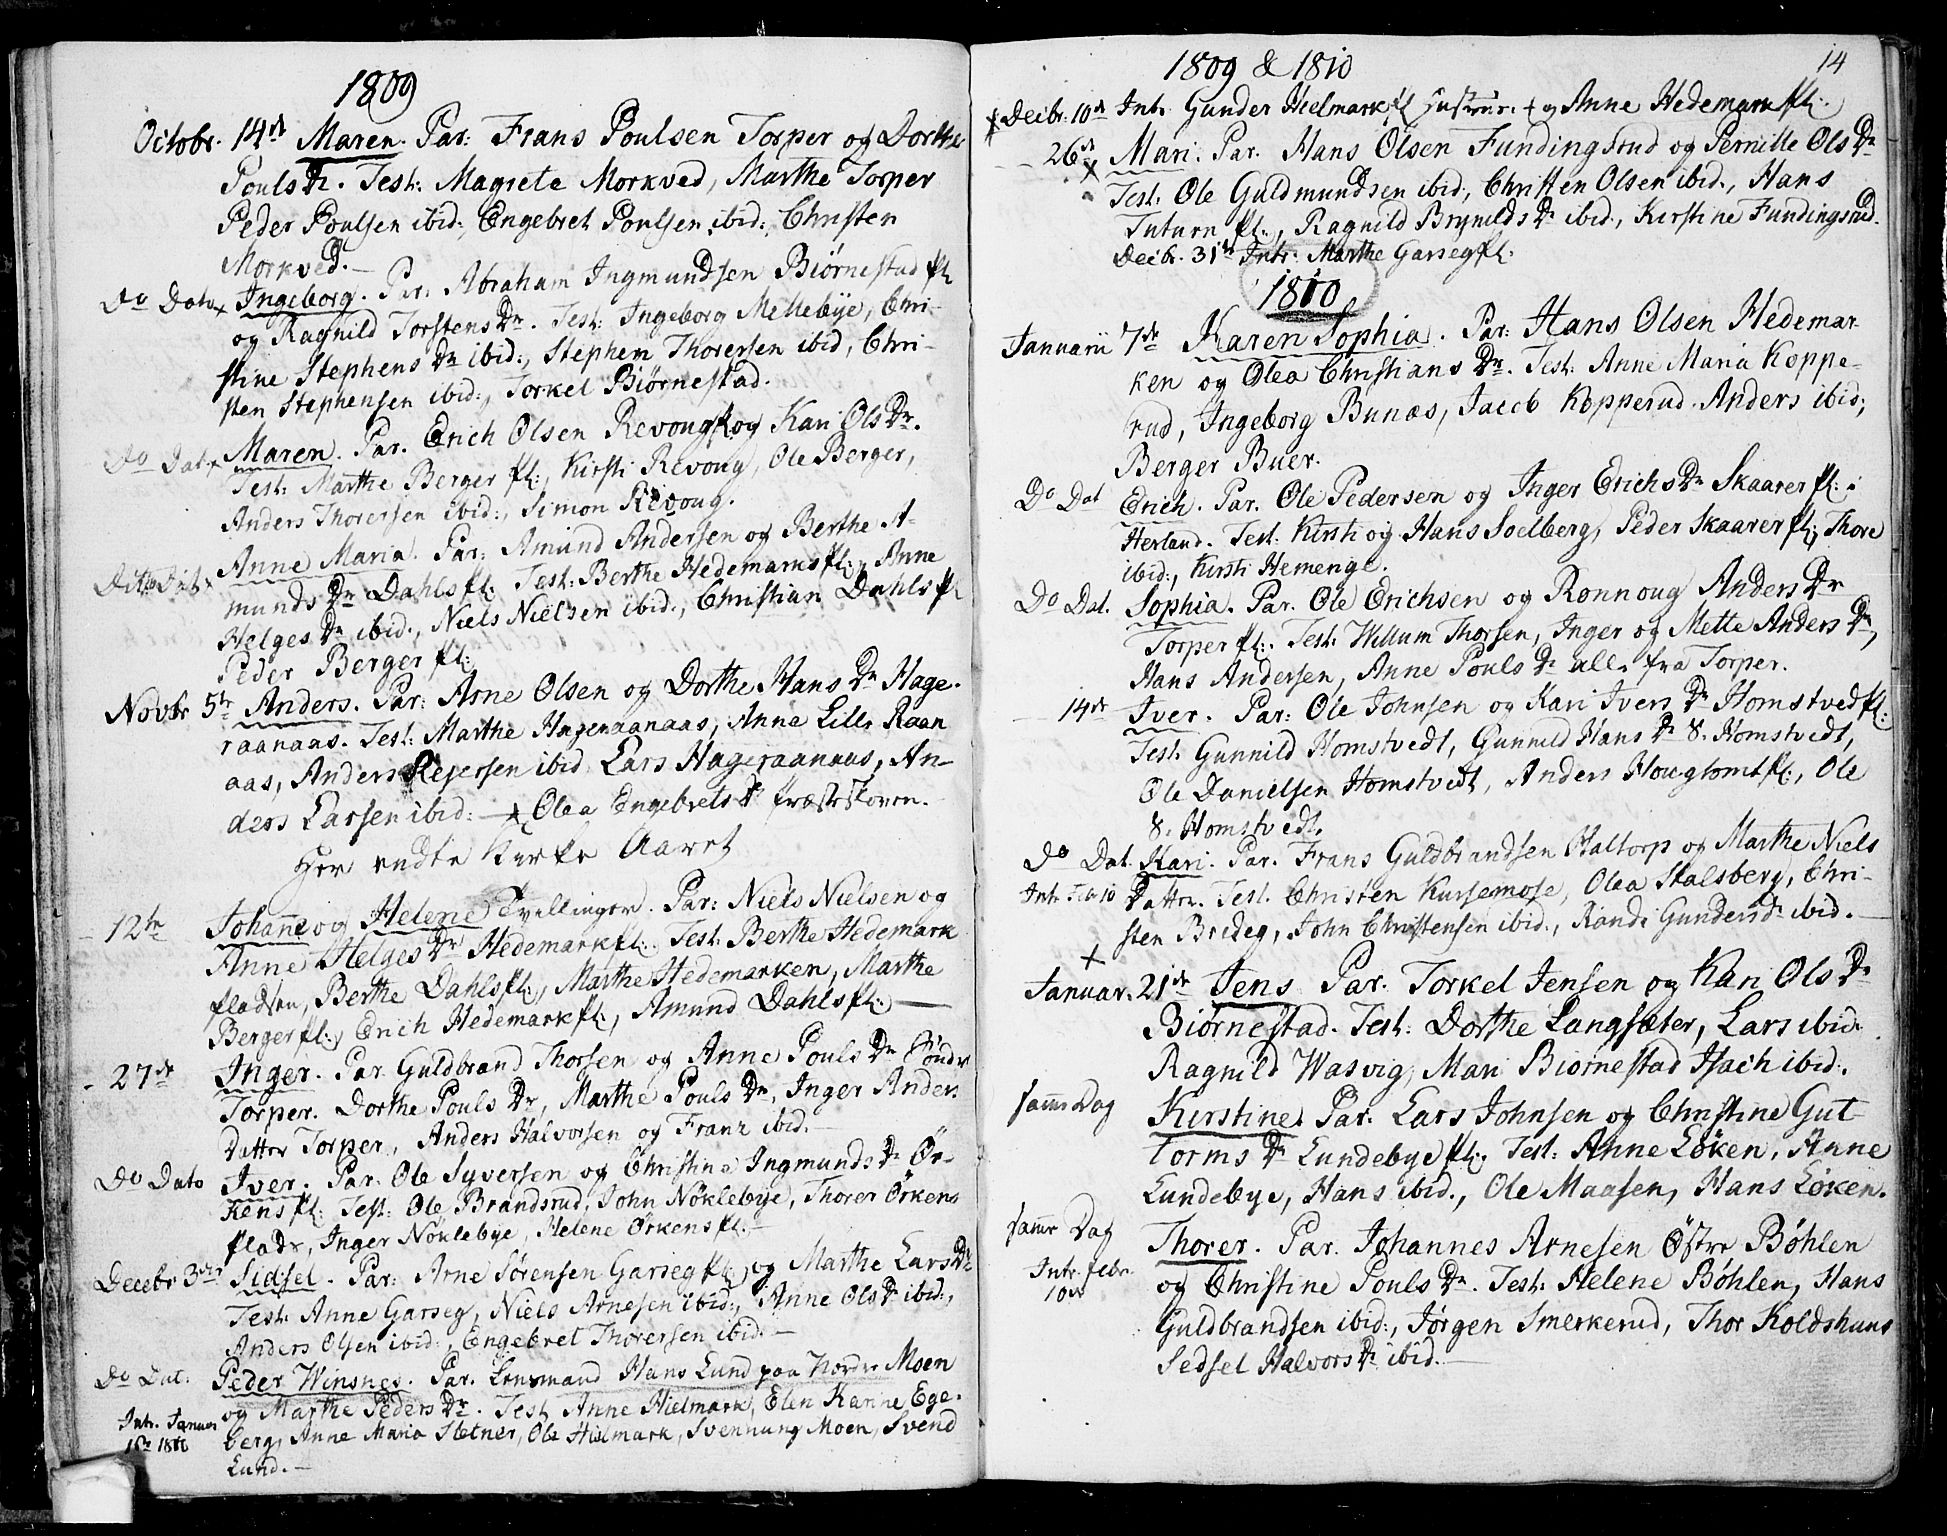 1809
Octobr. 14de Maren. Par: Frans Poulsen Torper og Dorthe
Pouls Dr. Test: Magrete Morkved, Marthe Torper
Peder Poulsen ibid:, Engebret Poulsen ibid:, Christen
Morkved.—
Do Dato x Ingeborg. Par: Abraham Ingmundsen Biørnestad pl
og Ragnild Torstens Dr. Test: Ingeborg Mellebye, Chri-
stine Stephens Dr ibid:, Stephen Thorersen ibid, Chri-
sten Stephensen ibid:, Torkel Biørnestad.
Do Dat x Maren. Par. Erich Olsen Revoug pl og Kari Ols Dr.
Test: Marthe Berger pl:, Kirsti Revoug, Ole Berger,
Anders Thorersen ibid:, Simon Revoug.
Anne Maria. Par: Amund Andersen og Berthe A-
Dito Dat: x munds Dr Dahls pl: Test: Berthe Hedemarks pl:, Anne
Helges Dr ibid:, Niels Nielsen ibid:, Christian Dahls pl
Peder Berger pl:
Novbr 5te Anders. Par: Arne Olsen og Dorthe Hans Dr Hage-
raanaas. Test: Marthe Hageraanaas, Anne Lille Raan
aas, Anders Rejersen ibid Lars Hageraanaas, An-
ders Larsen ibid: — x Olea Engebrets Dr Præsteskoven.
Her endte Kirke Aaret
– 12te Johanne og Helene Tvillinger. Par: Niels Nielsen og
Anne Helges Dr Hedemark pl: Test: Berthe Hedemark
pladsen, Berthe Dahls pl:, Marthe Hedemarken, Marthe
Berger pl:, Erich Hedemark pl:, Amund Dahls pl: —
- 27de Inger. Par. Guldbrand Thorsen og Anne Pouls Dr Søndr
Torper. Dorthe Pouls Dr, Marthe Pouls Dr, Inger Anders
Datter Torper, Anders Halvorsen og Franz ibid.—
Do Dato Iver. Par. Ole Syversen og Christine Ingmunds Dr Ør-
kens pl: Test: Ole Brandsrud, John Nøklebye, Thorer Ørkens
plads, Inger Nøklebye, Helene Ørkens pl:—
Decebr 3die Sidsel. Par: Arne Sørensen Garseg pl: og Marthe Lars Dr
Test: Anne Garseg, Niels Arnesen ibid:, Anne Ols Dr ibid:,
Anders Olsen ibid:, Engebret Thorersen ibid:—
Do Dat: Peder Winsnes. Par. Lensmand Hans Lund paa Nordre Moen
og Marthe Peders Dr. Test Anne Hielmark, Elen Karine Ege-
Intr. Januar berg, Anne Maria Sletner, Ole Hielmark, Svennung Moen, Svend
1ste 1810 Lund.—
1809 & 1810
14
x Decbr. 10de Intr. Gunder Hielmark pl Hustrue + og Anne Hedemark pl:
- 26de x Mari. Par. Hans Olsen Fundingsrud og Pernille Ols Dr
Test. Ole Guldmundsen ibid:, Christen Olsen ibid:, Hans
Tuturn pl:, Ragnild Brynilds Dr ibid, Kirstine Fundingsrud.
Decbr. 31te Intr: Marthe Garseg pl:
1810
Januarii 7de Karen Sophia. Par: Hans Olsen Hedemar-
ken og Olea Christians Dr. Test. Anne Maria Koppe-
rud, Ingeborg Bunæs, Jacob Kopperud. Anders ibid;
Berger Buer.
Do Dat Erich. Par. Ole Pedersen og Inger Erichs Dr Skaarer pl: i
Herland. Test. Kirsti og Hans Soelberg, Peder Skaarer pl:, Thore
ibid:, Kirsti Hemenge.
Do Dat. Sophia. Par. Ole Erichsen og Ronnoug Anders Dr
Torper pl:. Test: Willum Thorsen, Inger og Mette Anders Dr,
Hans Andersen, Anne Pouls Dr alle fra Torper.
— 14de Iver. Par: Ole Johnsen og Kari Ivers Dr Homstved pl:
Test. Gunnild Homstvedt, Gunnild Hans Dr S. Homstvedt,
Ole Danielsen Homstvedt, Anders Hougtomt pl:, Ole
S. Homstvedt.
Do Dat. Kari. Par. Frans Guldbrandsen Haltorp og Marthe Niels
Intr. Feb 10 Datter. Test. Christen Kursemose, Olea Stalsberg, Chri-
sten Bredeg, John Christensen ibid:, Randi Gunders Dr ibid.—
x
Januar. 21de Jens Par. Torkel Jensen og Kari Ols Dr
Biørnestad. Test: Dorthe Langsæter, Lars ibid.
Ragnild Wasvig, Mari Biørnestad Isach ibid:.
samme Dag Kirstine. Par: Lars Johnsen og Christine Gut-
torms Dr Lundebye pl:. Test: Anne Løken, Anne
Lundebye, Hans ibid., Ole Maasen, Hans Løken.
samme Dag Thorer. Par. Johannes Arnesen Østre Bøhlen
Intr. febr. og Christine Pouls Dr. Test: Helene Bøhlen, Hans
10de Guldbrandsen ibid:, Jørgen Smerkerud, Thor Koldshuus
Sedsel Halvors Dr ibid.—